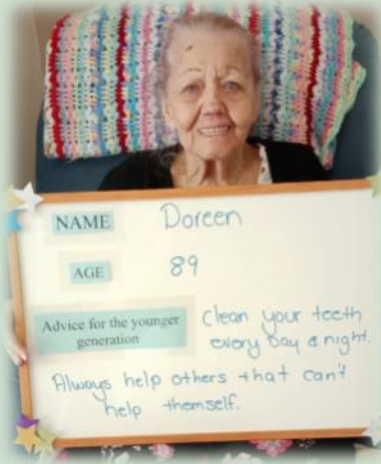 NAME Doreen
AGE 89
Advice for the younger generation
Clean your teeth
every Day & night.
Always help others that can't
help themself.